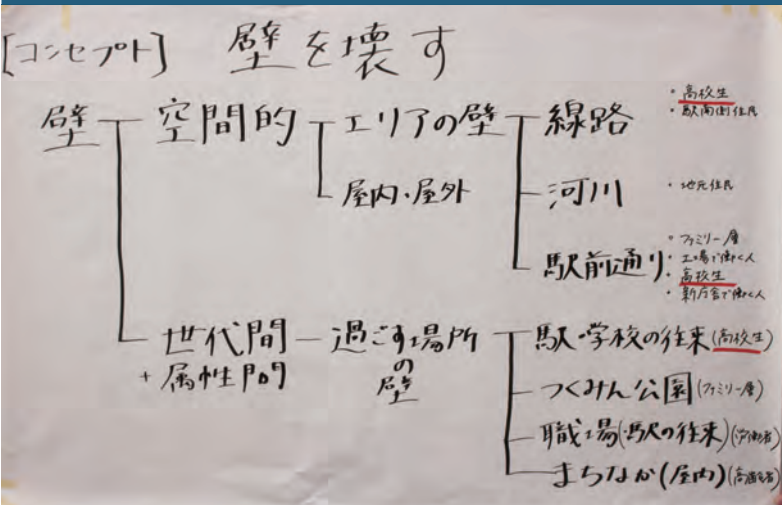 [コンセプト] 壁を壊す
壁 空間的 エリアの壁 線路
・高校生
・駅南側住民
屋内・屋外 河川
・地元住民
駅前通り
・ファミリー層
・工場で働く人
・高校生
・新庁舎で働く人
世代間 過ごす場所の壁 駅・学校の往来(高校生)
+属性間
つくみん公園(ファミリー層)
職場(・駅の往来)(労働者)
まちなか(屋内)(高齢者)